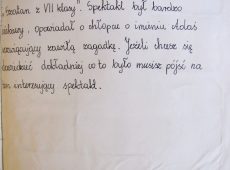 „Szatan z VII klasy". Spektakl był bardzo
ciekawy, opowiadał o chłopcu o imieniu Adaś
rozwiązujący zawiłą zagadkę. Jeżeli chcesz się
dowiedzieć dokładniej co to było musisz pójść na
ten interesujący spektakl.